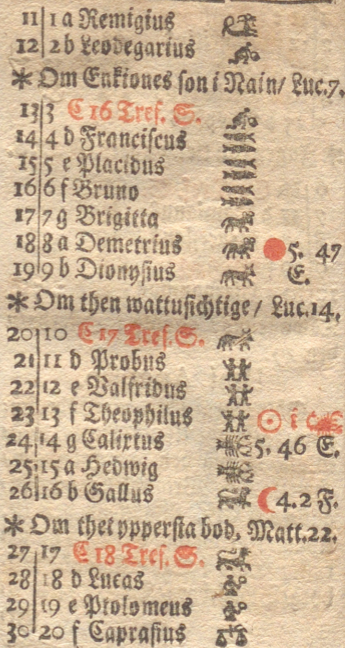 11 1 a Remigius
12 2 b Leodegarius
* Om Enkiones son i Nain/ Luc.7.
13 3 C 16 Tref. S.
14 4 d Franciscus
15 5 e Placidus
16 6 f Bruno
17 7 g Brigitta
18 8 a Demetrius 5. 47
19 9 b Dionysius E.
* Om then wattusichtige / Luc.14.
20 10 C 17 Tref. S.
21 11 d Probus
22 12 e Valfridus
23 13 f Theophilus ☉ i
24 14 g Calixtus 5. 46 E.
25 15 a Hedwig
26 16 b Gallus 4.2 F.
* Om thet yppersta bod, Matt.22.
27 17 C 18 Tref. S.
28 18 d Lucas
29 19 e Ptolomeus
30 20 f Caprasius